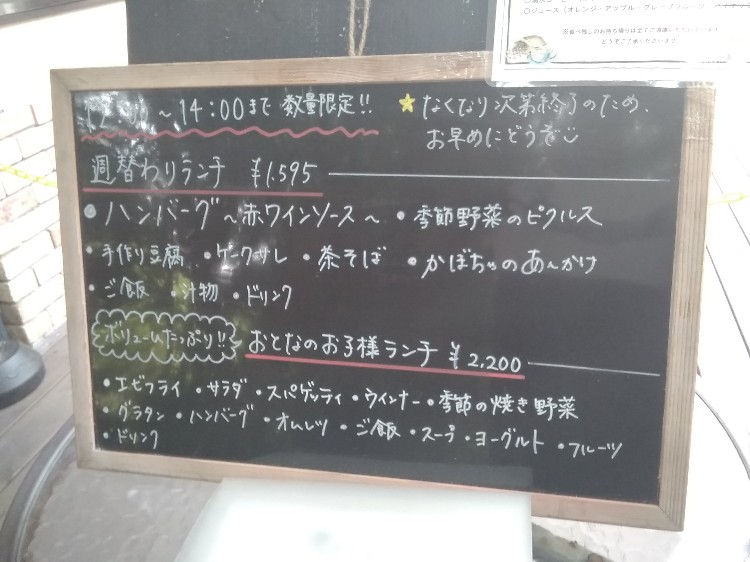 ○ジュース(オレンジ・アップル・グレープフルーツ・
※食べ残しのお持ち帰りは全てご遠慮いただいています
どうぞご了承くださいませ
~14:00まで 数量限定!!
★なくなり次第終了のため、
お早めにどうぞ
週替わりランチ ¥1.595
●ハンバーグ~赤ワインソース~ ・季節野菜のピクルス
・手作り豆腐 ・ケークサレ ・茶そば ・かぼちゃのあんかけ
・ご飯 ・汁物 ・ドリンク
ボリュームたっぷり!! おとなのお子様ランチ ¥2,200
・エビフライ ・サラダ ・スパゲッティ ・ウインナー ・季節の焼き野菜
・グラタン ・ハンバーグ ・オムレツ ・ご飯 ・スープ ・ヨーグルト ・フルーツ
・ドリンク